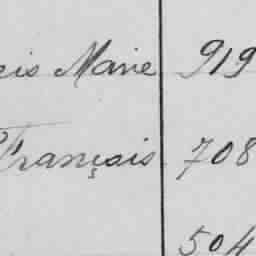 cis Marie 919
François 708
504